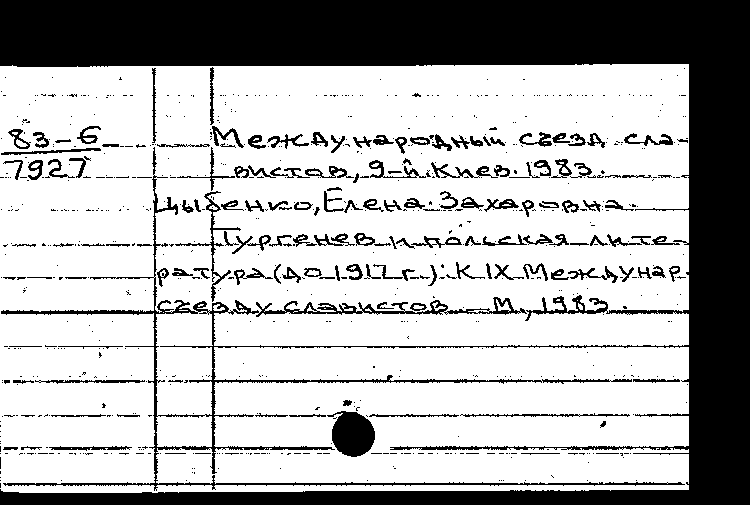 83-6 Международный съезд сла-
7927 вистов, 9-й. Киев. 1983.
Цыбенко, Елена Захаровна.
Тургенев и польская лите-
ратура (до 1917 г.): К IX Междунар.
съезду славистов. М., 1983.